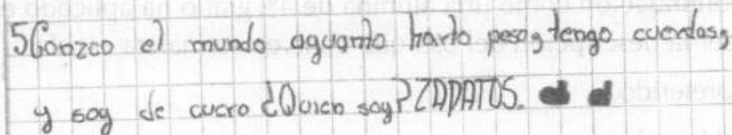 5Conzco el mundo aguanto harto peso, tengo cuerdas,
y soy de cuero ¿Quien soy? ZAPATOS.